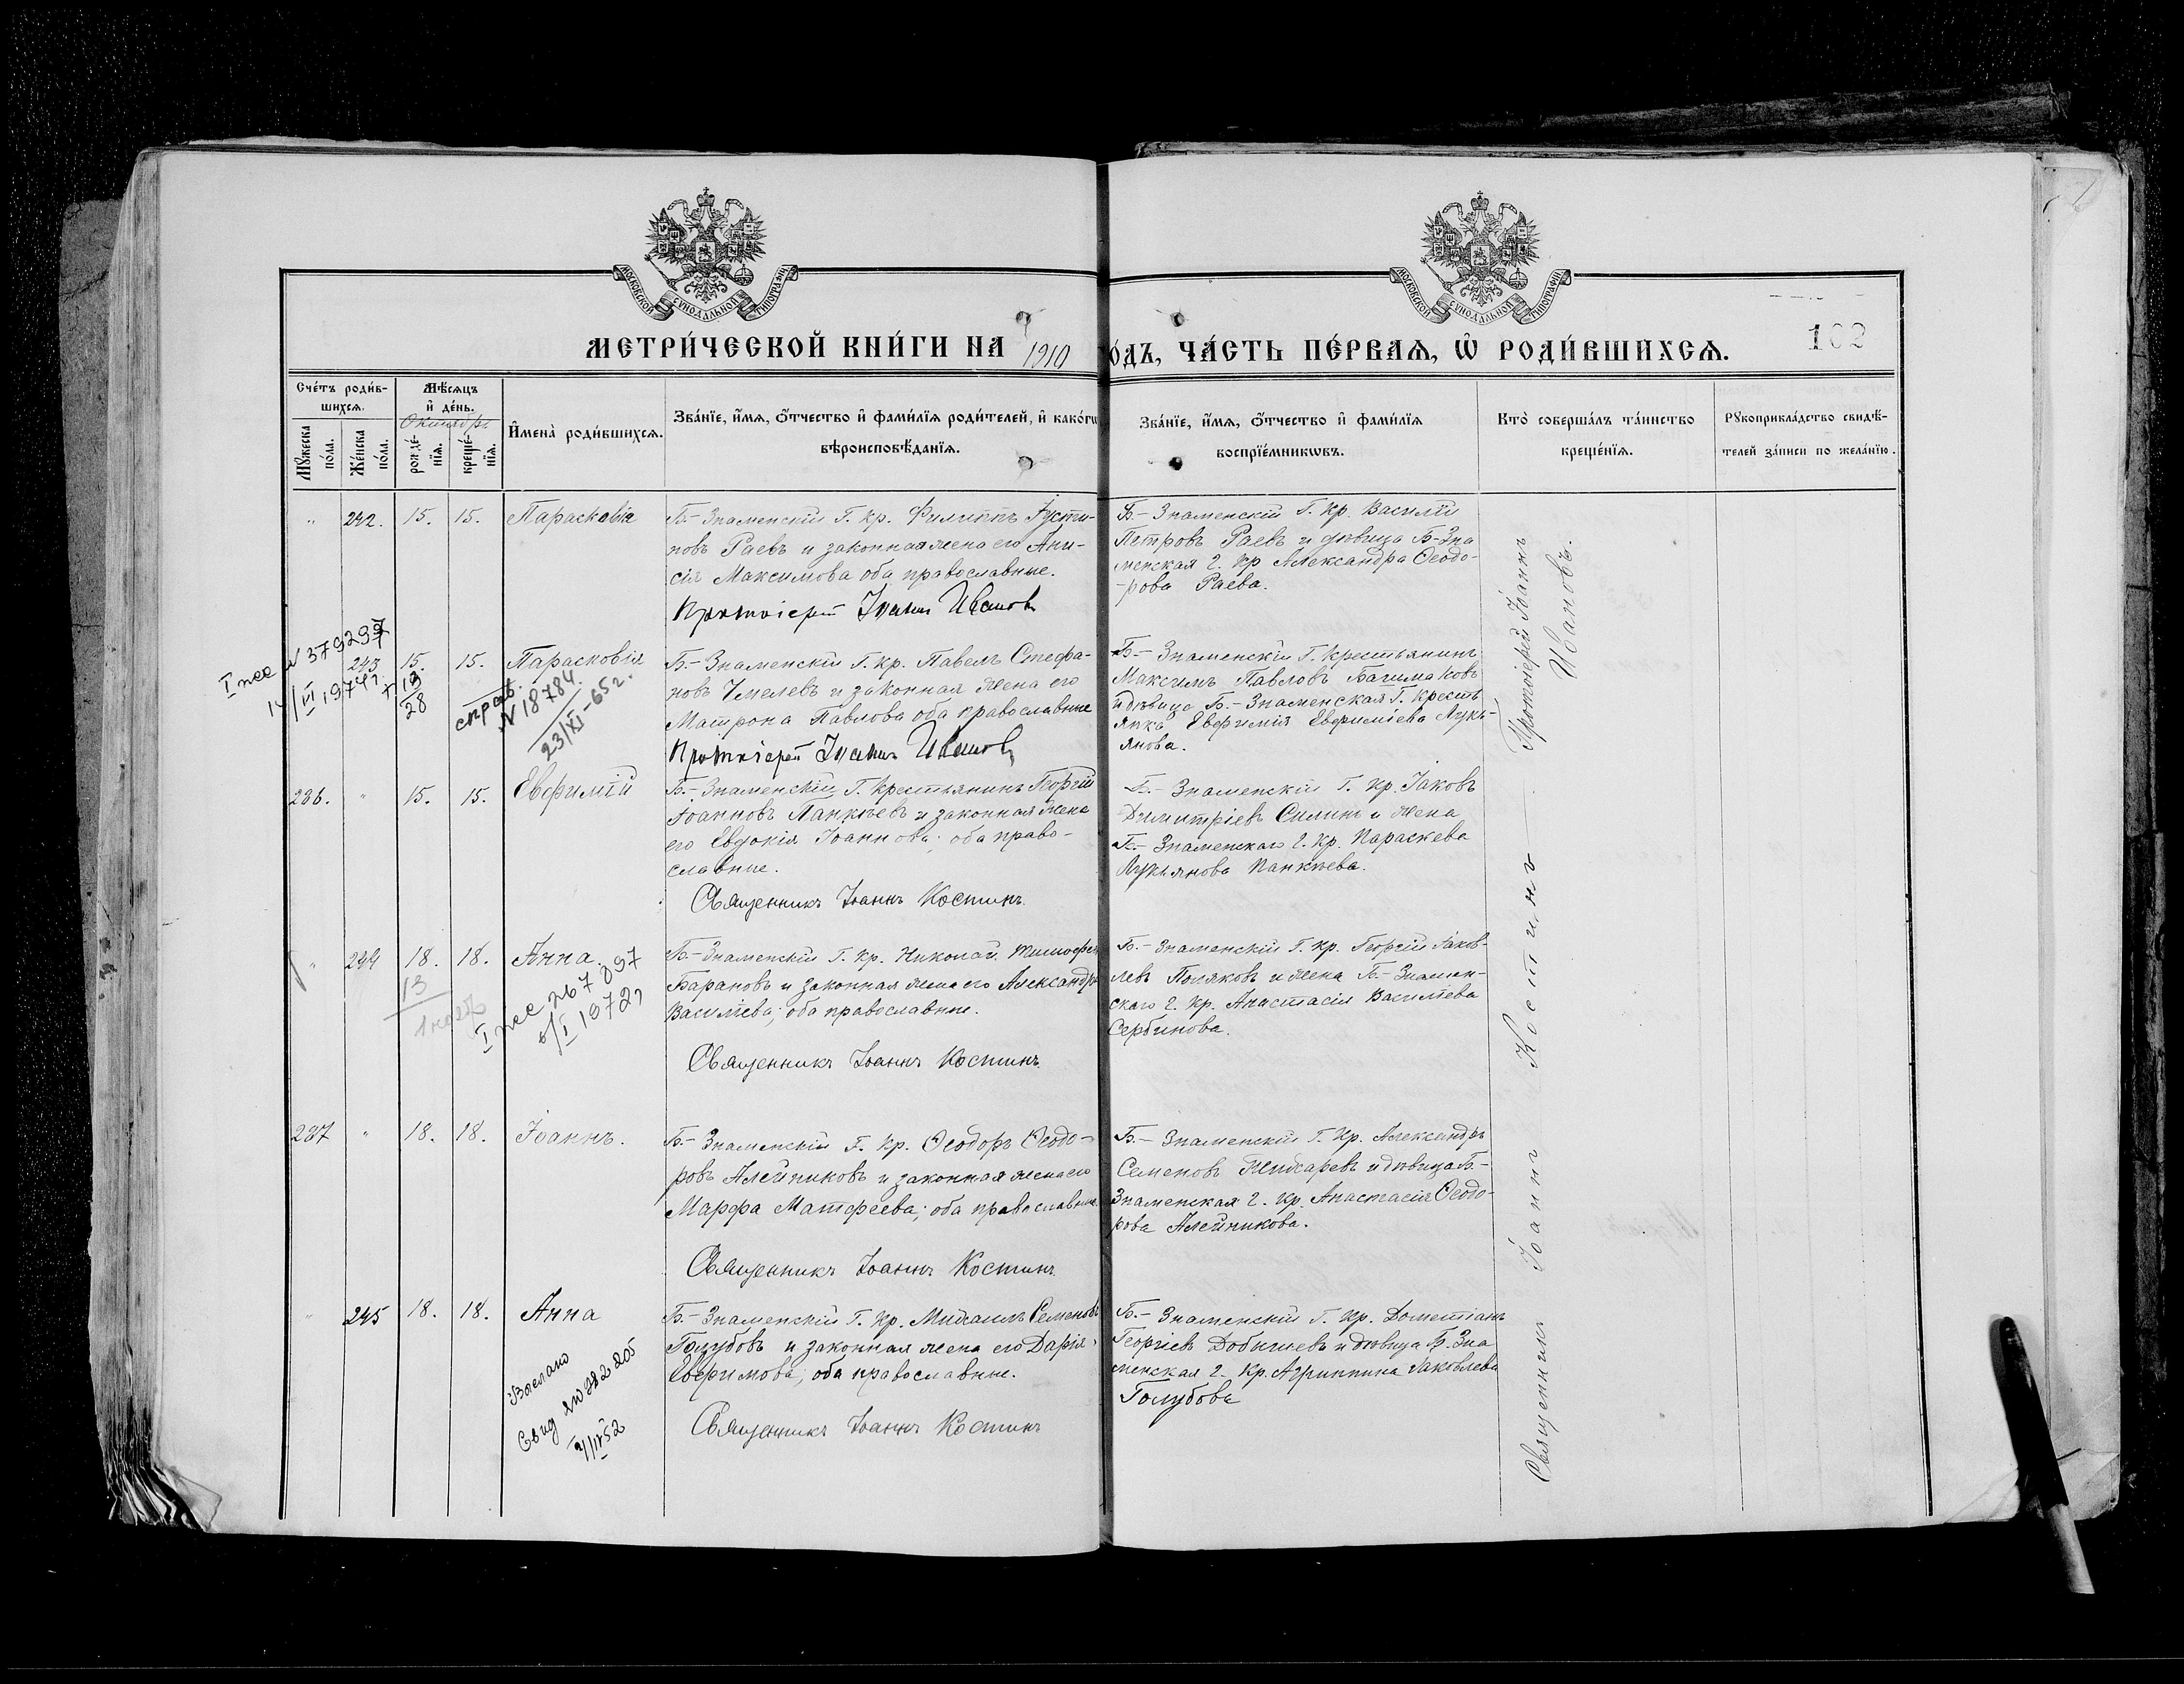 МОСКОВСКОЙ СѴНОДАЛЬНОЙ ТИПОГРАФІИ
МОСКОВСКОЙ СѴНОДАЛЬНОЙ ТИПОГРАФІИ
МЕТРИ́ЧЕСКОЙ КНИ́ГИ НА 1910
О́ДЪ, ЧА́СТЬ ПЕ́РВАѦ, Ѡ҆ РОДИ́ВШИХСѦ.
102
Сче́тъ роди́в-
шихсѧ.
Мꙋ́жеска по́ла.
Же́нска по́ла.
Мѣ́сѧцъ
и҆ де́нь.
Октябрь
рожде́-нїѧ.
креще́-нїѧ.
И҆мена̀ роди́вшихсѧ.
Зва́нїе, и҆́мѧ, ѻ҆́тчество и҆ фами́лїѧ роди́телей, и҆ како́гѡ
вѣроисповѣ́данїѧ.
Зва́нїе, и҆́мѧ, ѻ҆́тчество и҆ фами́лїѧ
воспрїе́мникѡвъ.
Кто̀ соверша́лъ та́инство
креще́нїѧ.
Рꙋкоприкла́дство свидѣ́-
телей за́писи по жела́нїю.
" 242. 15. 15. Параскевіа
Б.-Знаменскій Г. кр. Филиппъ Іусти-
новъ Раевъ и законная жена его Ани-
сія Максимова оба православные.
Протоіерей Іоаннъ Ивановъ
Б-Знаменскій Г. кр. Василій
Петровъ Раевъ и дѣвица Б-Зна
менская г. кр Александра Ѳеодо-
-рова Раева.
I пес N 379297
14/III 1974г.
243 15. 15. Парасковія
13
28
справ.
N 18784.
23/XI-65г.
Б.-Знаменскій Г. кр. Павелъ Стефа-
новъ Чмелевъ и законная жена его
Матрона Павлова оба православные
Протоіерей Іоаннъ Ивановъ
Б-Знаменскій Г. крестьянинъ
Максимъ Павловъ Багимаковъ
и дѣвица Б.-Знаменская Г. кресть
янка Евфимія Евфиміева Лукь-
янова.
Протоіерей Іоаннъ
Ивановъ.
236. " 15. 15. Евфимій
Б.-Знаменскій Г. крестьянинъ Георгій
Іоанновъ Панкѣевъ и законная жена
его Евдокія Іоаннова; оба право-
славные.
Священникъ Іоаннъ Костинъ.
Б.-Знаменскій Г. кр. Іаковъ
Димитріевъ Силинъ и жена
Б-Знаменскаго г. кр. Параскева
Лукьянова Панкѣева.
" 244 18. 18. Анна.
13
I пес 267897
6/I 1972г
Б.-Знаменскій Г. кр. Николай Тимофеев
Барановъ и законная жена его Александра
Василіева; оба православные.
Священникъ Іоаннъ Костинъ.
Б.-Знаменскій Г. кр. Георгій Іаков-
левъ Поляковъ и жена Б-Знамен-
скаго г. кр. Анастасія Василіева
Сербинова.
237 " 18. 18. Іоаннъ.
Б.-Знаменскій Г. кр. Ѳеодоръ Ѳеодо-
ровъ Алейниковъ и законная жена его
Марфа Матфеева; оба православные.
Священникъ Іоаннъ Костинъ
Б.-Знаменскій Г. кр. Александръ
Семеновъ Жихаревъ и дѣвица Б-
Знаменская г. кр. Анастасія Ѳеодо-
рова Алейникова.
" 245 18. 18. Анна
Выслано
Свид 282205
52
Б-Знаменскій Г. кр. Михаилъ Семеновъ
Голубовъ и законная жена его Дарія
Евфимова; оба православные.
Священникъ Іоаннъ Костинъ
Б.-Знаменскій Г. кр. Дометіанъ
Георгіевъ Добычевъ и дѣвица Б-Зна
менская г. кр. Агриппина Іаковлева
Голубова
Священникъ Іоаннъ Костинъ